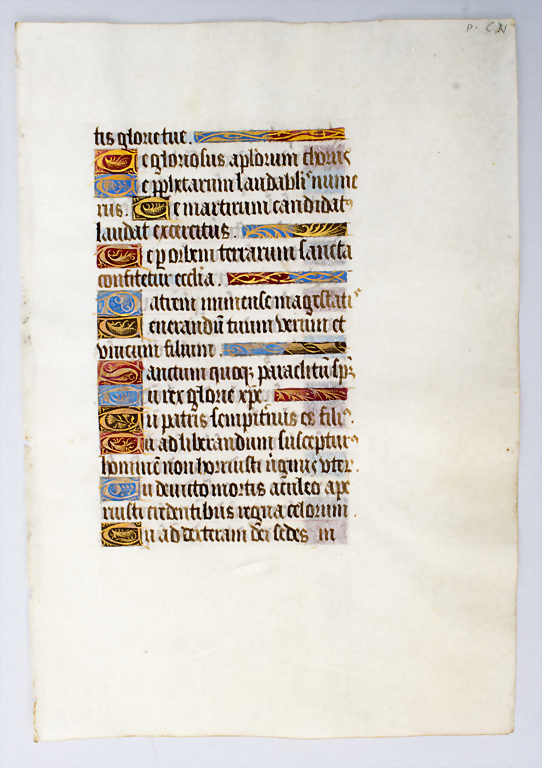 P. CN
tis glorie tue.
Te gloriosus aplorum chorus
Te pphetarum laudabilis nume
rus. Te martirum candidatꝰ
laudat excercitus.
Te p orbem terrarum sancta
confitetur ecclia.
Patrem immense magestatis
Venerandū tuum verum et
vnicum filium.
Sanctum quoqꝫ paraclitū spm
Tu rex glorie xpe.
Tu patris sempitnus es filiꝰ.
Tu ad liberandum suscepturꝰ
hominē non horruisti virginis vterū.
Tu deuicto mortis aculeo ape
ruisti credentibus regna celorum.
Tu ad dexteram dei sedes in